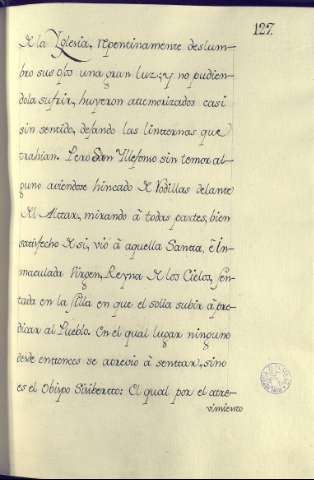 127.
de la Yglesia, repentinamente deslum-
bro sus ojos una gran luz; y no pudien-
dola sufrir, huyeron atemorizados casi
sin sentido, dejando las linternas que
trahian. Pero San Yldefonso sin temor al-
guno aviendose hincado de Rodillas delante
del Altar, mirando à todas partes, bien
satisfecho de si, viò à aquella Santa, è In-
maculada Virgen, Reyna de los Cielos, sen-
tada en la silla en que el solia subir à pre-
dicar al Pueblo. En el qual lugar ninguno
desde entonces se atrevio à sentar, sino
es el Obispo Sisiberto: El qual por el atre-
vimiento